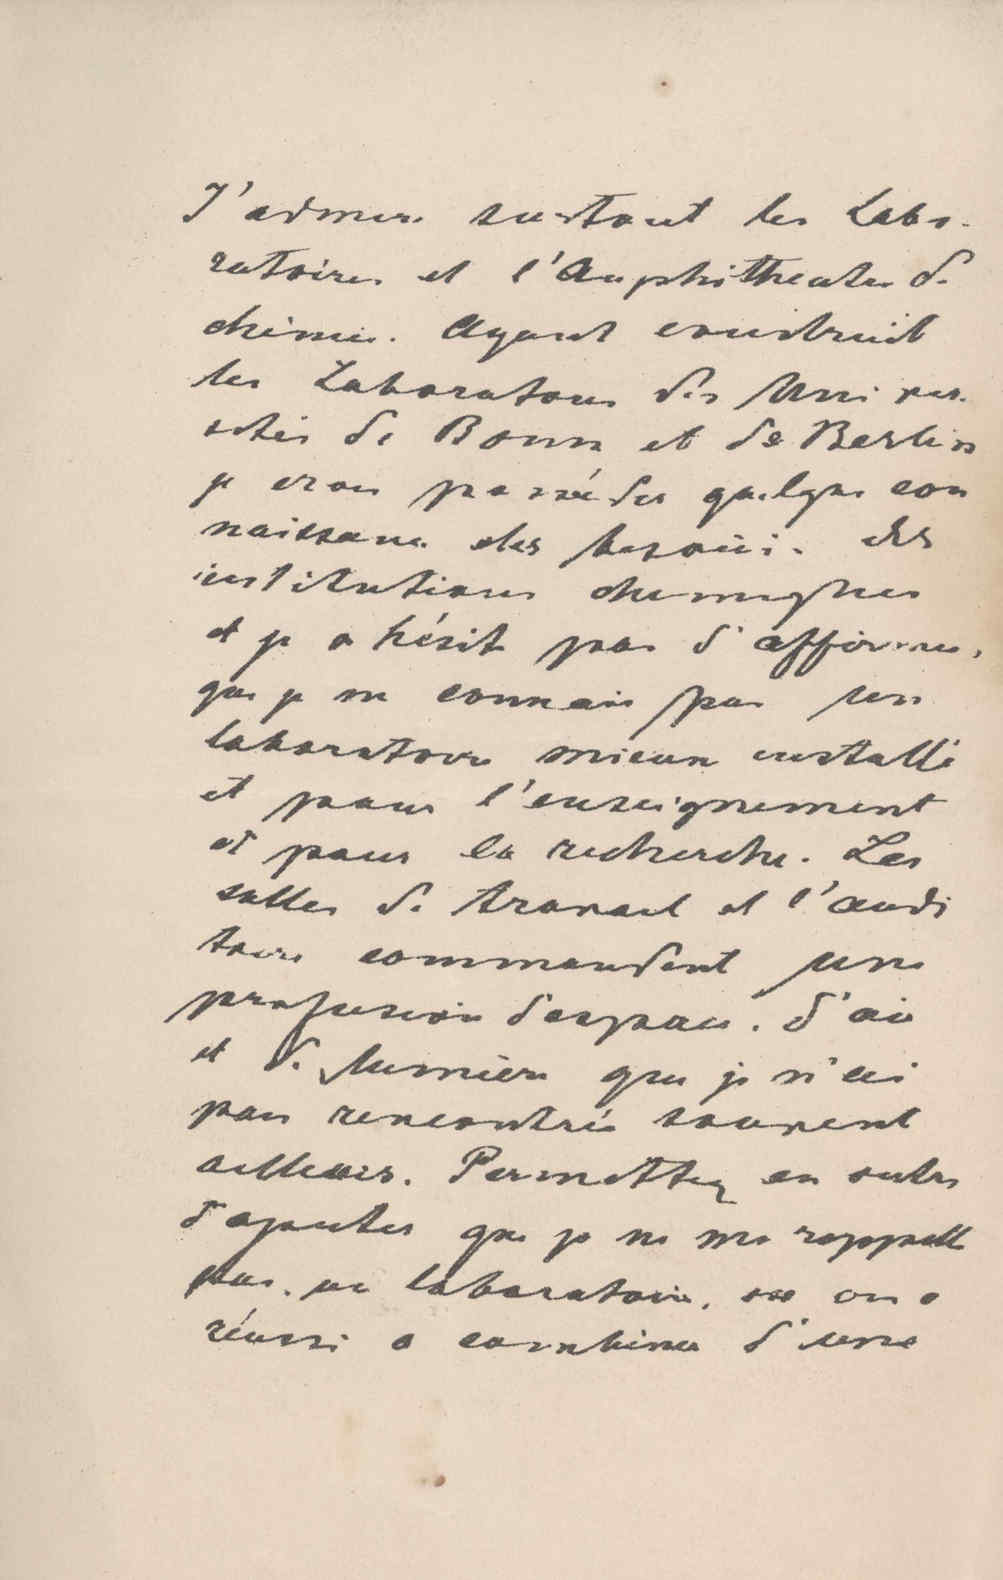 J'admire surtout les Labo-
ratoires et l'Amphithéatre de
chimie. Ayant construit
les Laboratoires des Univer-
sités de Bonn et de Berlin
je crois posséder quelque con
naissance des besoins des
institutions chimiques
et je n'hésite pas d'affirmer,
que je ne connais pas un
laboratoire mieux installé
et pour l'enseignement
et pour la recherche. Les
salles de travail et l'audi
toire commandent une
profusion d'espace, d'air
et de lumière que je n'ai
pas rencontrée souvent
ailleurs. Permettez en outre
d'ajouter que je ne me rappelle
pas un laboratoire, où on a
réussi a combiner d'une